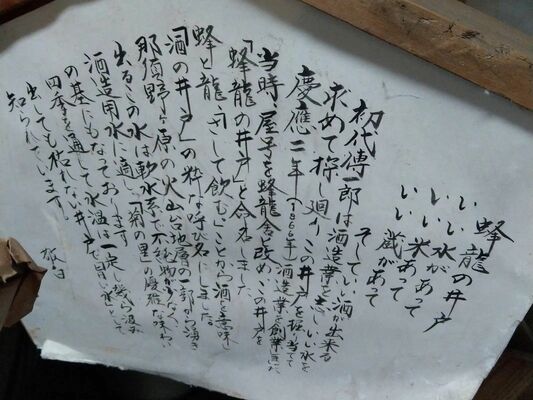 蜂龍の井戸
いい水があって
いい米あって
いい蔵があって
そしていい酒が出来る
初代傳一郎は酒造業を志しいい水を
求めて探し廻りこの井戸を掘り当て
慶應二年(1866年)酒造業を創業
当時、屋子を蜂龍舎と改めこの井戸を
「蜂龍の井戸」と命名しました
蜂と龍、
して飲むことから酒を意味し
「酒の井戸」の粋な呼び名にしました。
那須野ヶ原の火山台地層の一部から湧き
出るこの水は軟水系で不純物が少なく、
酒造用水に適し「菊の里」の
味わい
の基にもなっております
四季を通して水温は一定し幾ら汲み
出しても枯れない井戸で旨い水として
知られています。